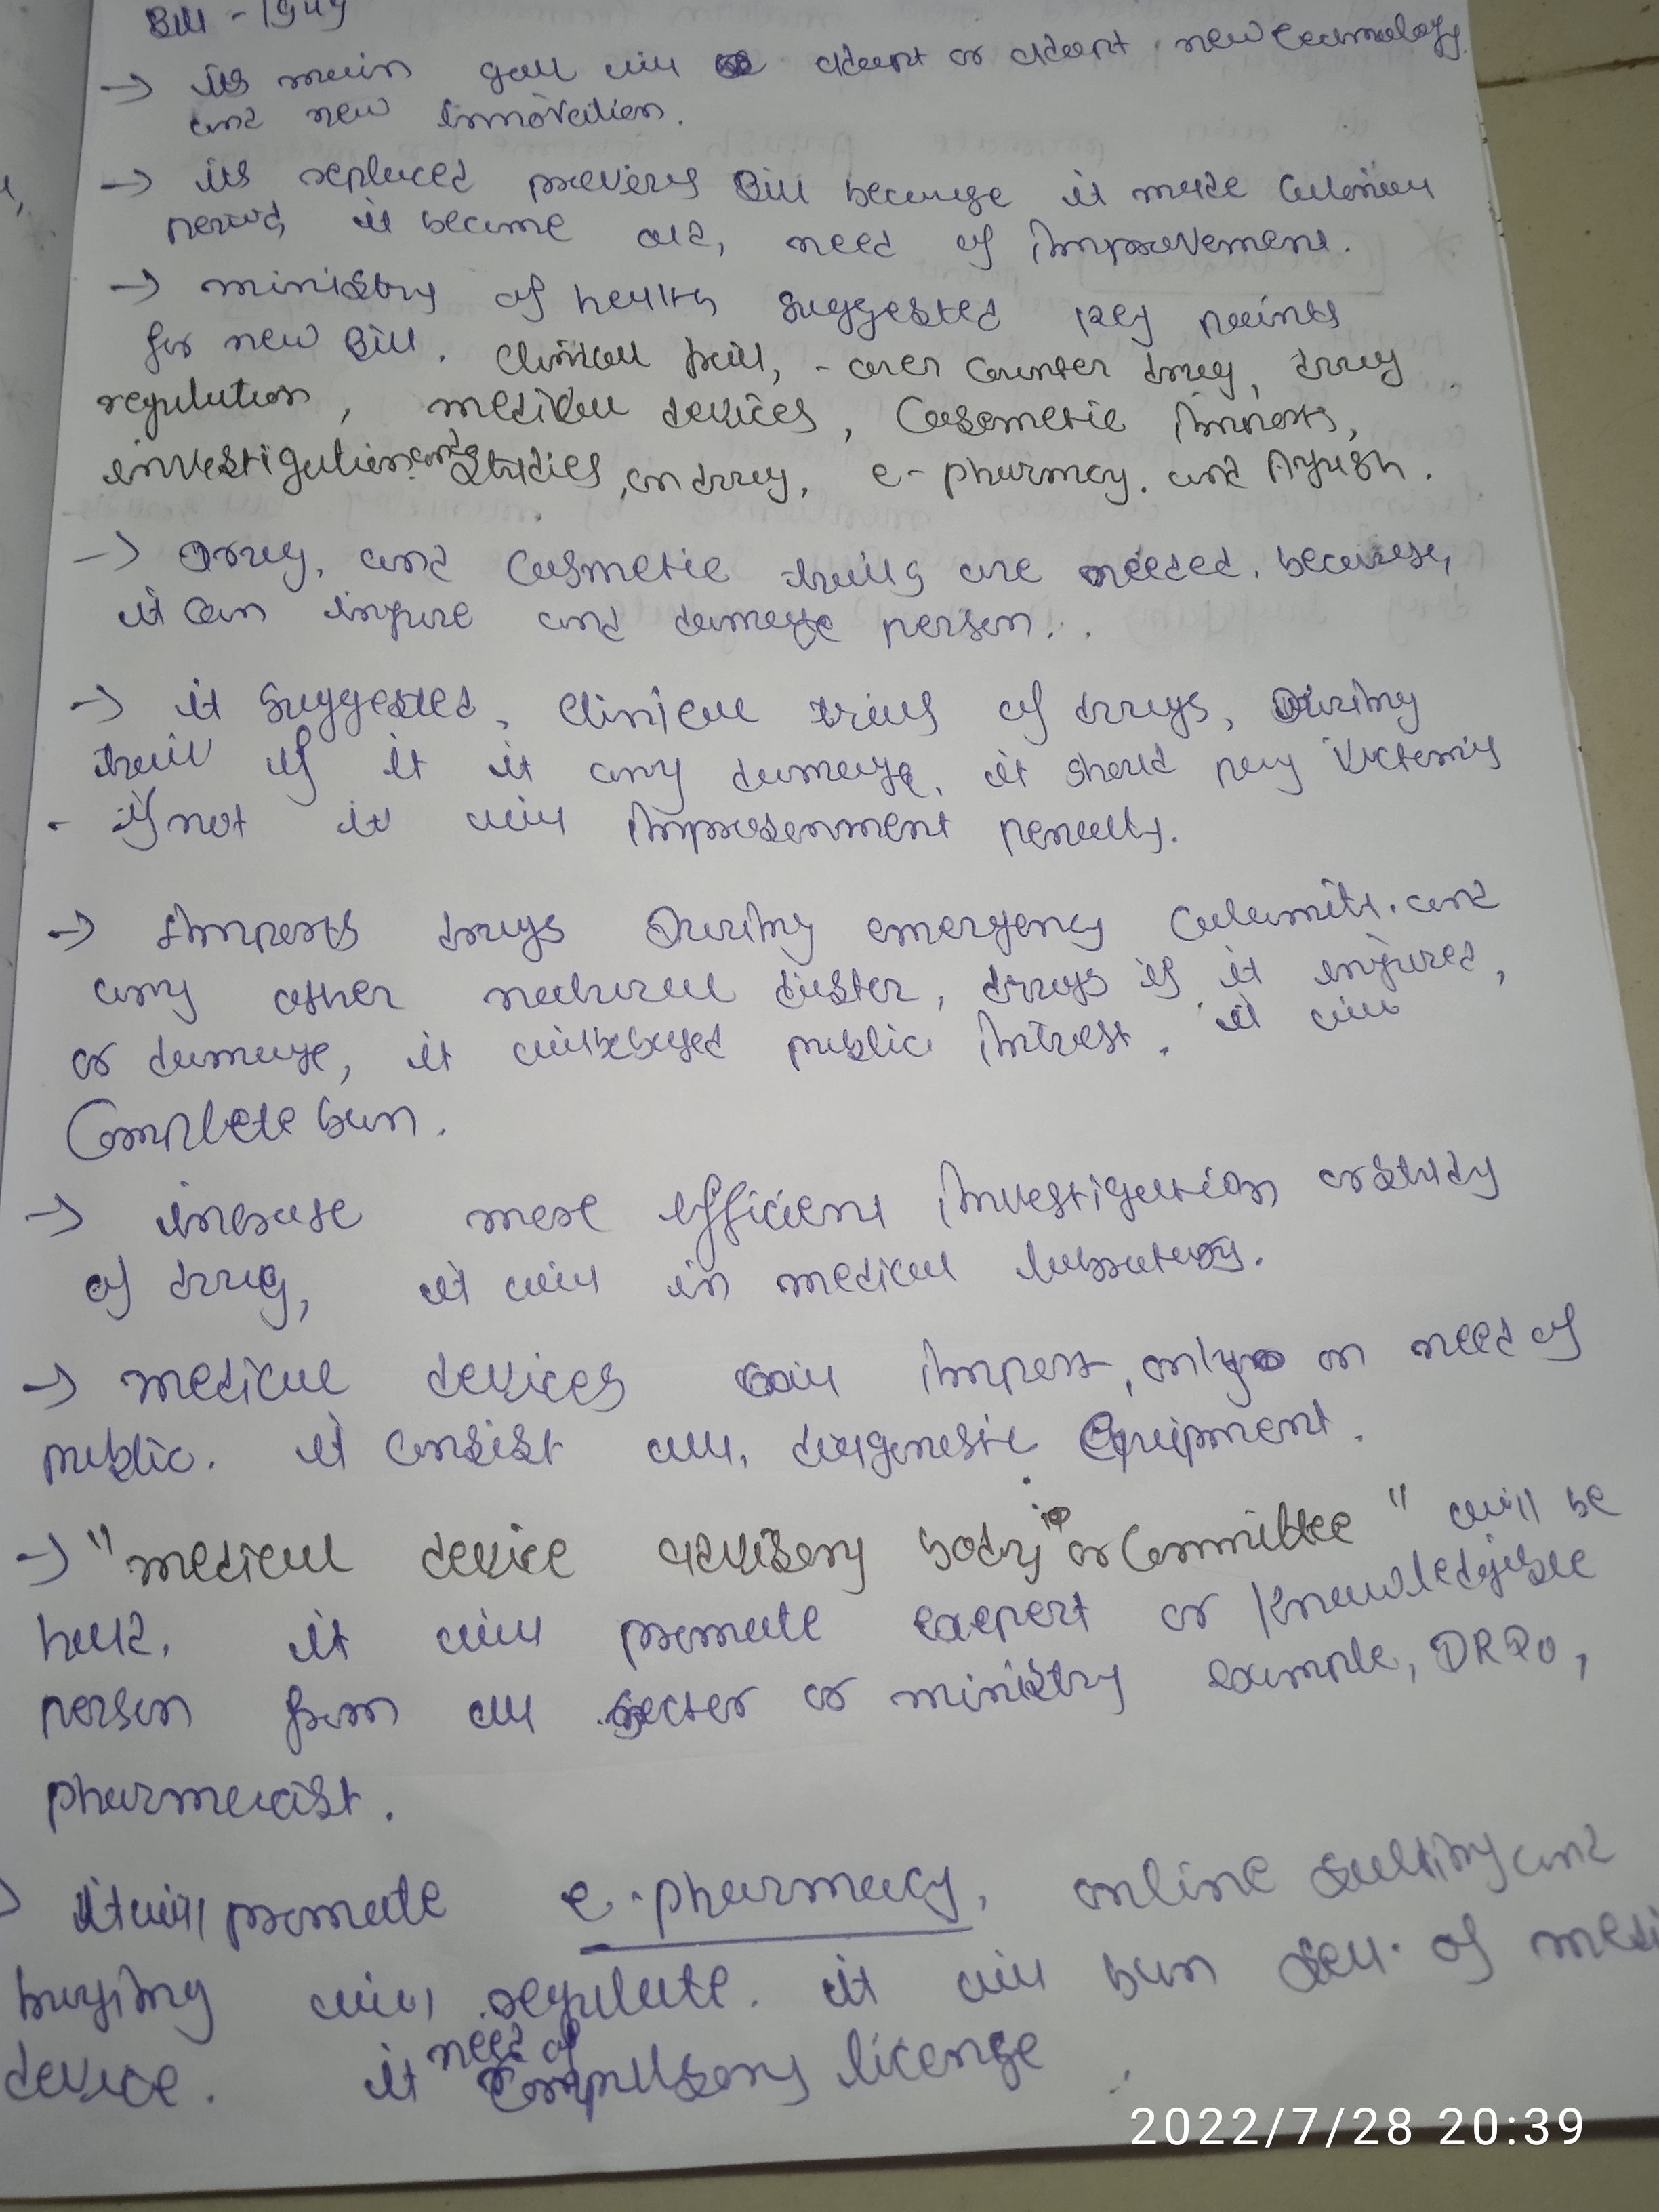 Bill - 1949
→ its main goal will adopt or adopt new technology
and new innovation.
→ its replaced previous Bill because it made colonial
period, it become old, need of improvement.
→ ministry of health suggested key points
for new Bill. Clinical trail, - over counter drug, drug
regulation, medical devices, Cosmetic imports,
investigation and studies, on drug, e-pharmacy. and Ayush.
→ Drug, and cosmetic trails are needed. because,
it can injure and damage person.
→ it suggested, clinical trials of drugs, During
trail if it it any damage, it should pay victims
- if not it will imprisonment penalty.
→ imports drugs During emergency calamity. and
any other natural dister, drugs if it injured,
or damage, it will be based public intrest. it will
Complete ban.
→ increase more efficient investigation or study
of drug, it will in medical laboratory.
→ medical devices will import, only on need of
public. it consist all, diagenostic Equipment.
→ "medical device advisory body or Committee" will be
held. it will promote experts or knowledgeble
person from all sector or ministry example, DRDO,
pharmacist.
it will promote e-pharmacy, online selling and
buying will regulate. it will ban sell of medi
device. it need of compulsory license
2022/7/28 20:39